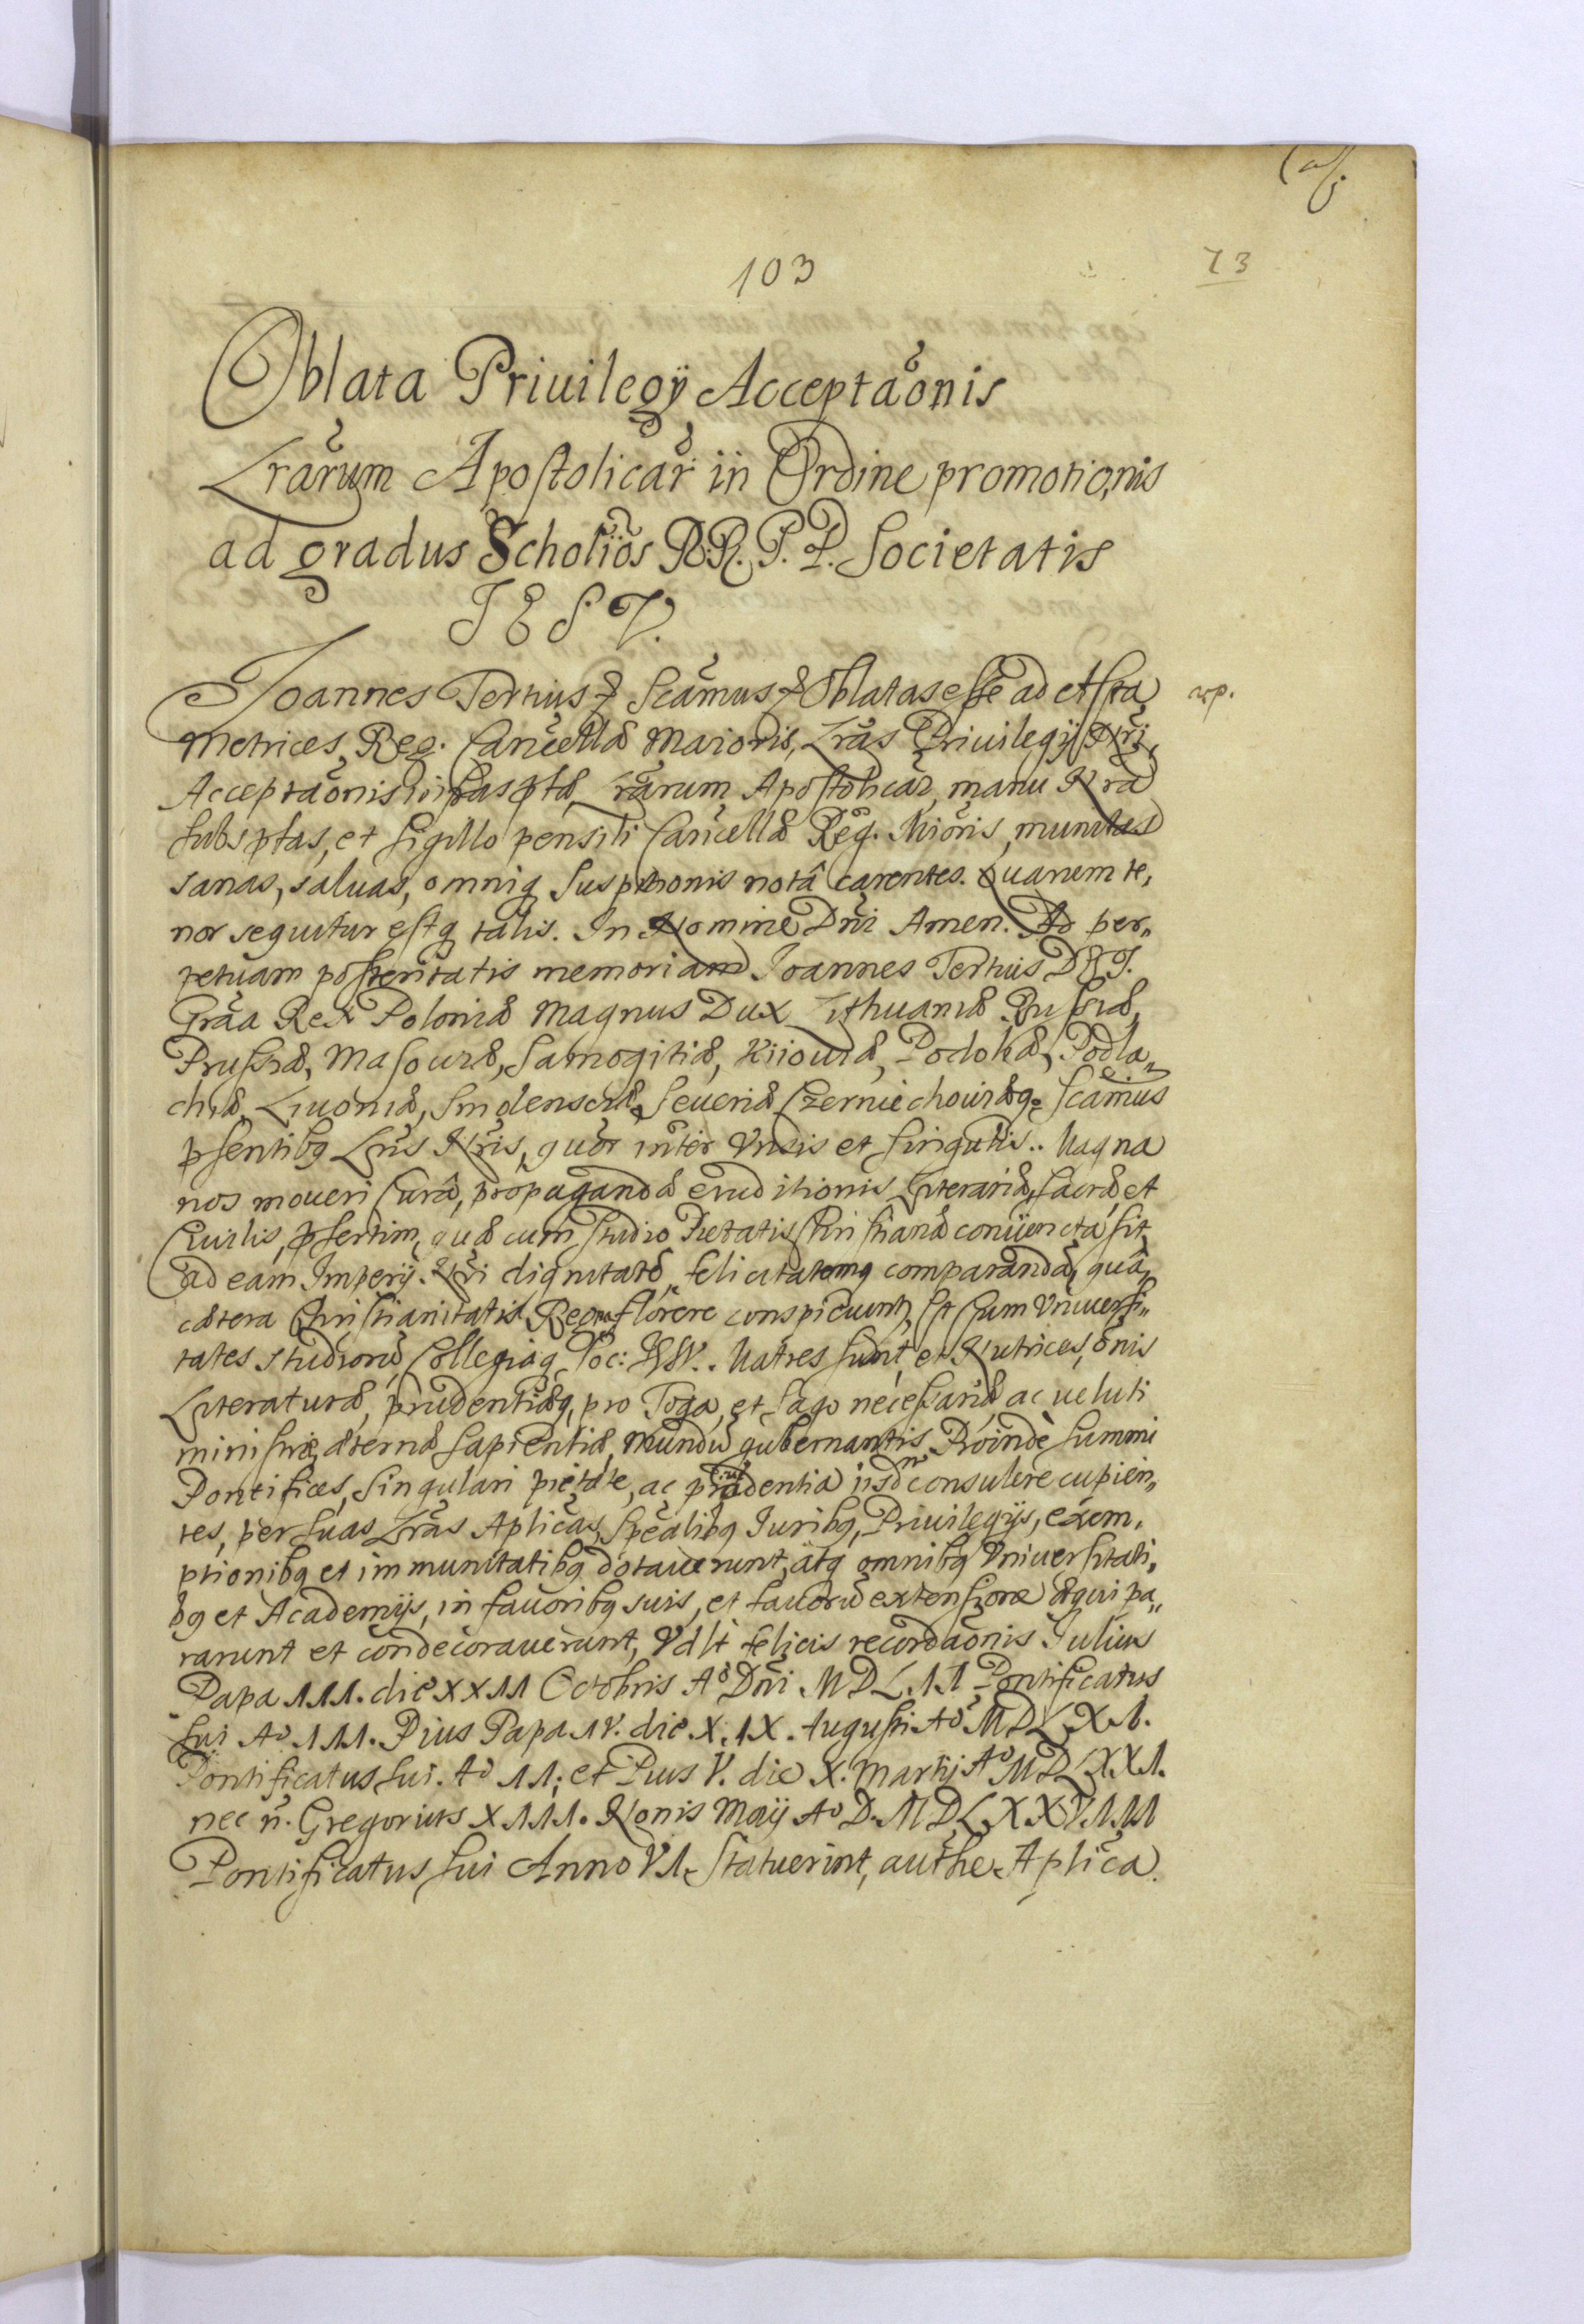 103
73
Oblata Priuilegÿ Acceptãonis
Lrãrum Apostolicar̃ in Ordine promotionis
ad gradus Scholiõs RR. P. P. Societatis
JESV.
Joannes Tertius & Scãmus & Oblatas esse ad Acta
Metrices Reg. Cancellæ Maioris, Lrãs Priuilegÿ Nrĩ,
Acceptãonis infrasptæ Lrãrum Apostolicar̃, manu Nrã
subsptas, et sigillo pensili Cancellæ Reg. Miõris, munitas
sanas, saluas, omniq suspitionis notâ carentes. Quarum te,
nor sequitur estq talis. In Nomine Dñi Amen. Ad per„
petuam posteritatis memoriam Joannes Tertius D&J.
Grãa Rex Poloniæ Magnus Dux Lithuaniæ Russiæ,
Prussiæ, Masouiæ, Samogitiæ, Kiiouiæ, Podoliæ, Podla„
chiæ, Liuoniæ, Smolensciæ, Seueriæ Czerniechouiæq; Scãmus
pſentibq Lris Nrĩs, quor̃ inter̃ Vnĩsis et singulis. Magna
nos moueri Curâ, propagandæ eruditionis Literariæ, sacræ et
Ciuilis, pſertim, quæ cum studio Pietatis Christianæ coniuncta sit,
ad eam Imperÿ Nri dignitatẽ, felicitatemq comparandã, quâ„
cætera Christianitatis Regna florere conspiciunt, Et Cum Vniuersi„
tates studiorũ Collegiaq Soc: JESV. Matres sunt et Nutrices, õnis
Literaturæ, prudentiæq, pro Toga, et Sago necessariæ ac ueluti
ministræ æternæ sapientiæ, Mundũ gubernantis. Proindè summi
Pontifices, singulari pietate, ac prudentia iisdm consulere cupien„
tes, per suas Lrãs Aplicas, Spẽalibq Juribq, Priuilegÿs, exem„
ptionibq et immunitatibq dotauerunt, atq omnibq Vniuersitati„
bq et Academÿs, in fauoribq suis, et fauorũ extensione æquipa„
rarunt et condecorauerunt, Vdlt felicis recordaõnis Julius
Papa III. die XXII Octobris Ao Dñi MDLII Pontificatus
sui Ao III. Pius Papa IV. die XIX. Augusti Ao MDLXI.
Pontificatus sui. Ao II; et Pius V. die X. Martÿ Ao MDLXXI.
nec ñ. Gregorius XIII. Nonis Maÿ Ao D. MDLXXVIII
Pontificatus sui Anno VI. Statuerint, authe Aplica